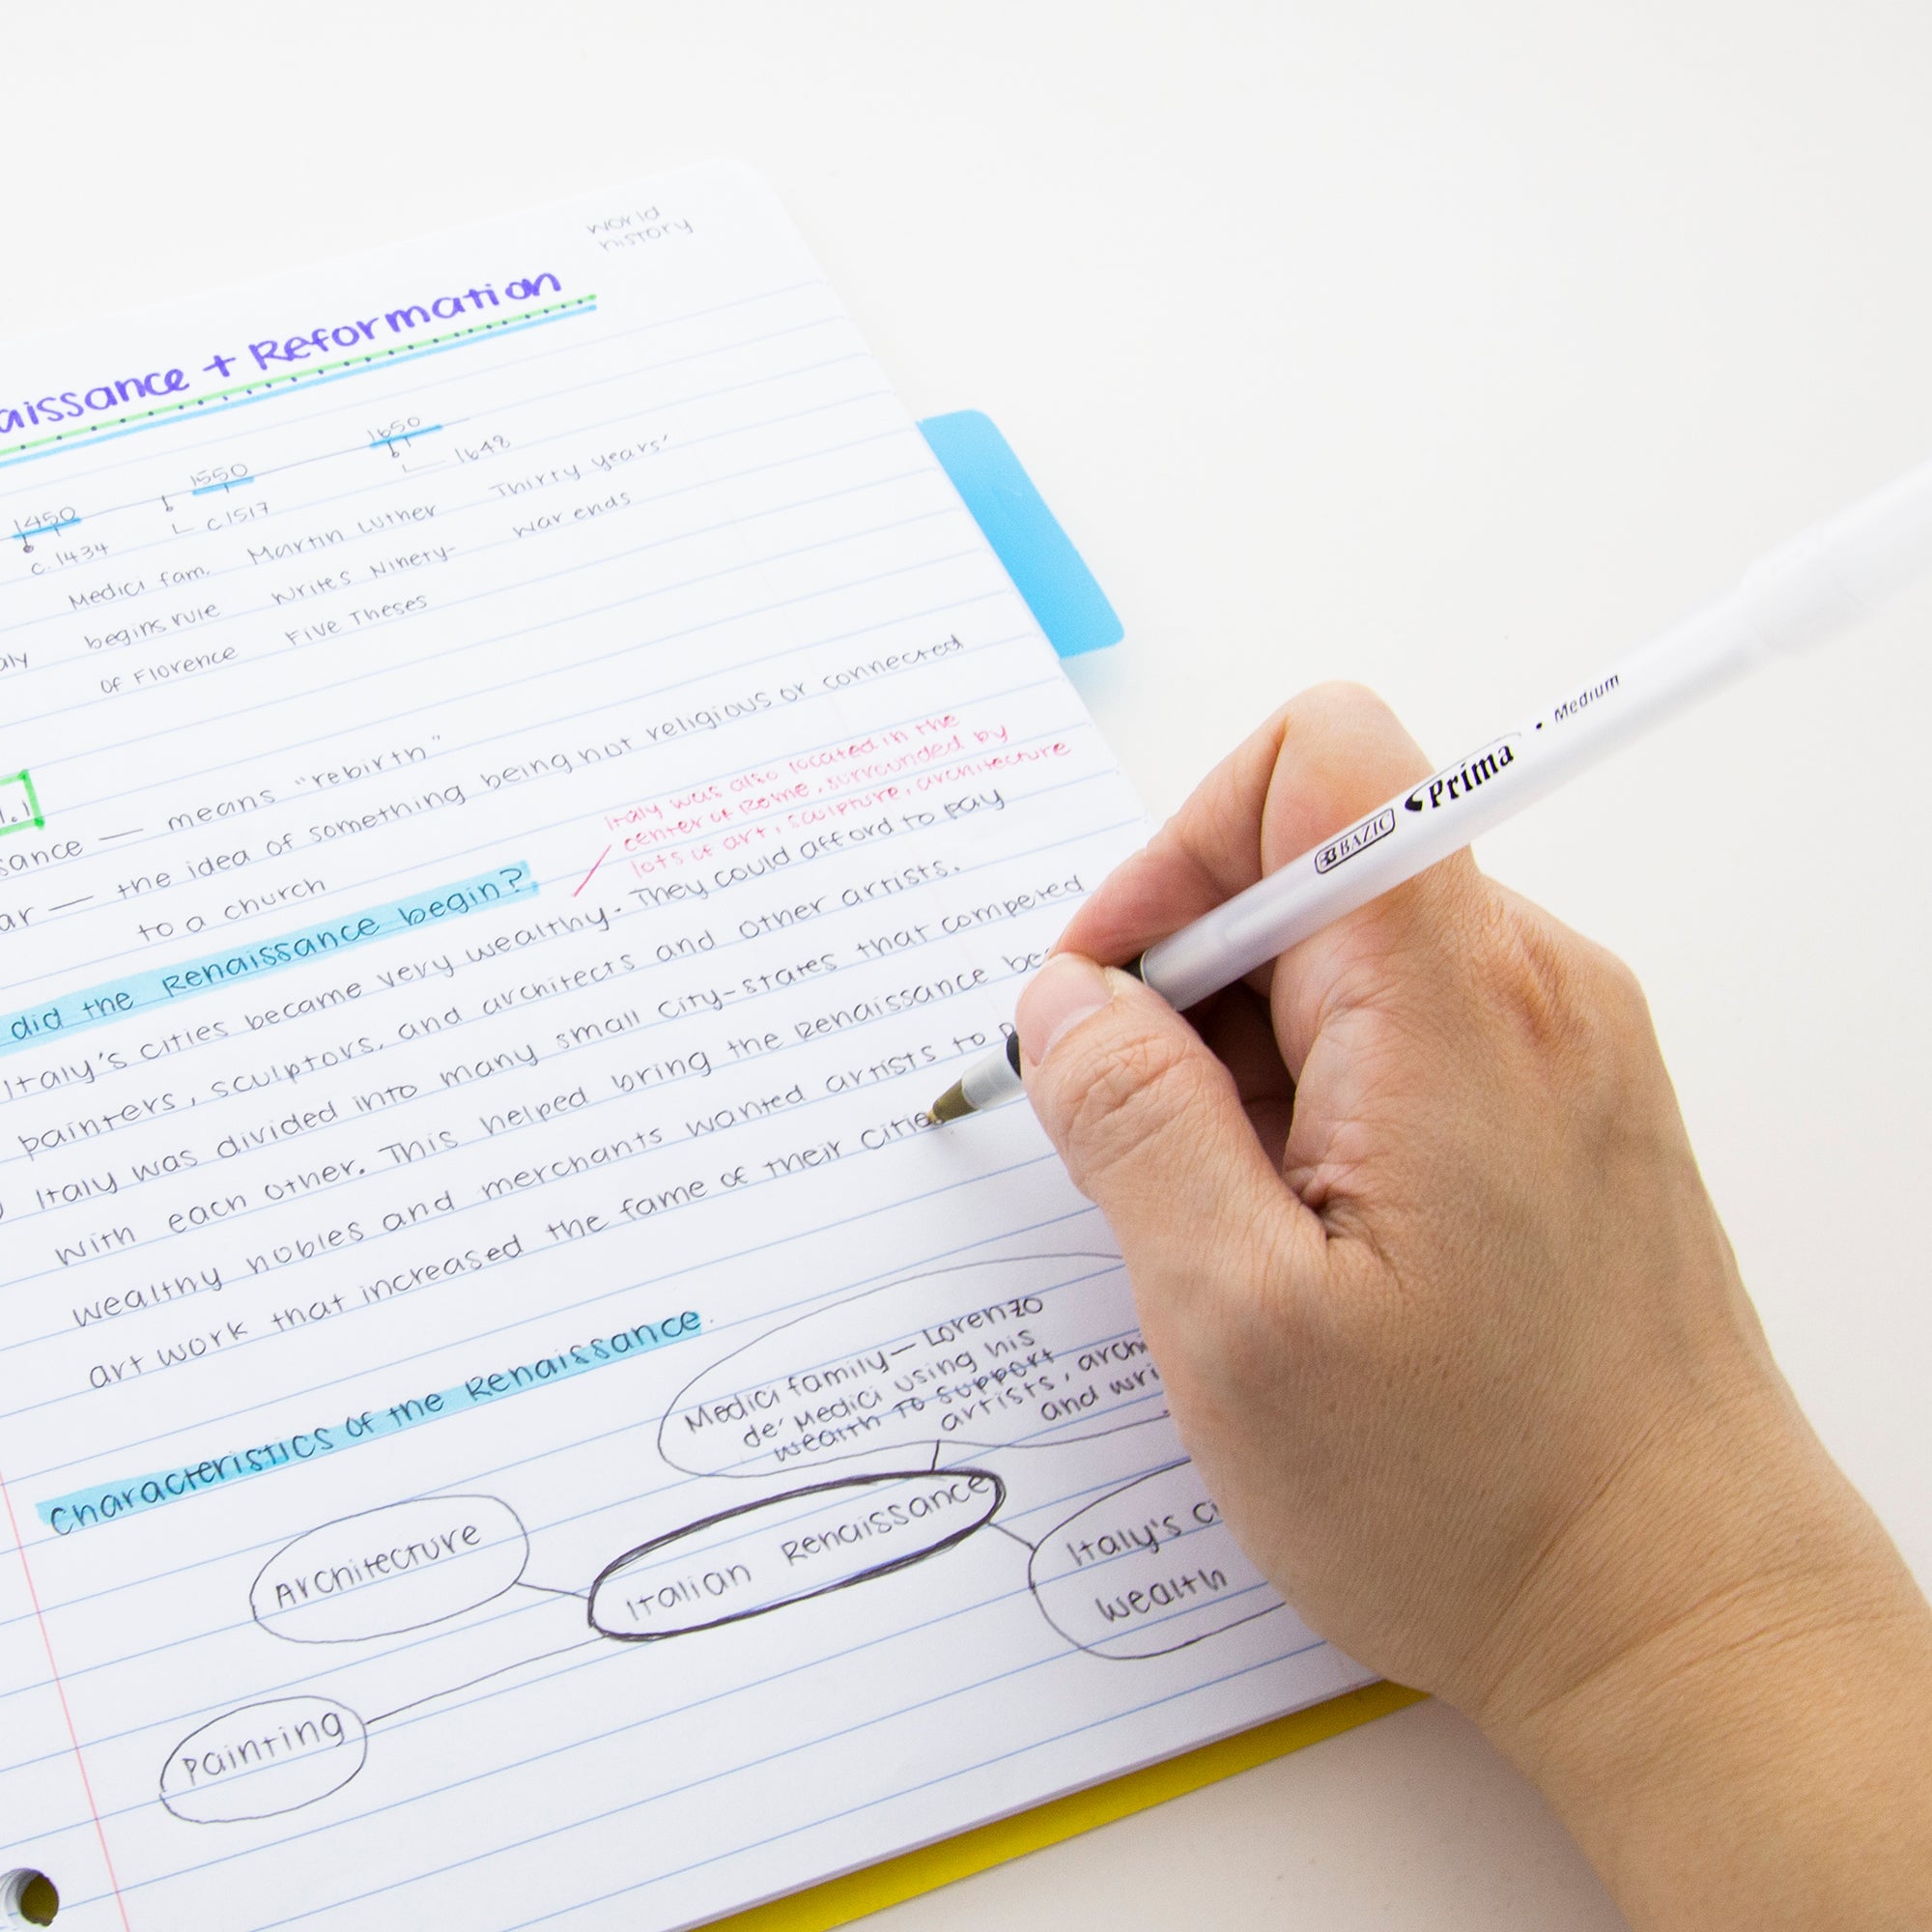 world
history
aissance + Reformation
1450
1550
1650
c. 1434
c 1517
1648
Medici fam.
begins rule
of Florence
Martin Luther
writes Ninety-
Five Theses
Thirty years'
war ends
aly
1.1
sance — means "rebirth"
ar — the idea of something being not religious or connected
to a church
did the Renaissance begin?
Italy was also located in the
center of Rome, surrounded by
lots of art, sculpture, architecture
Italy's cities became very wealthy. They could afford to pay
painters, sculptors, and architects and other artists.
Italy was divided into many small city-states that competed
with each other. This helped bring the Renaissance be
wealthy nobles and merchants wanted artists to p
art work that increased the fame of their citie
Characteristics of the Renaissance
Medici family — Lorenzo
de' Medici using his
wealth to support
artists, archi
and wri
Architecture
Italian Renaissance
Italy's ci
wealth
Painting
BAZIC Prima • Medium